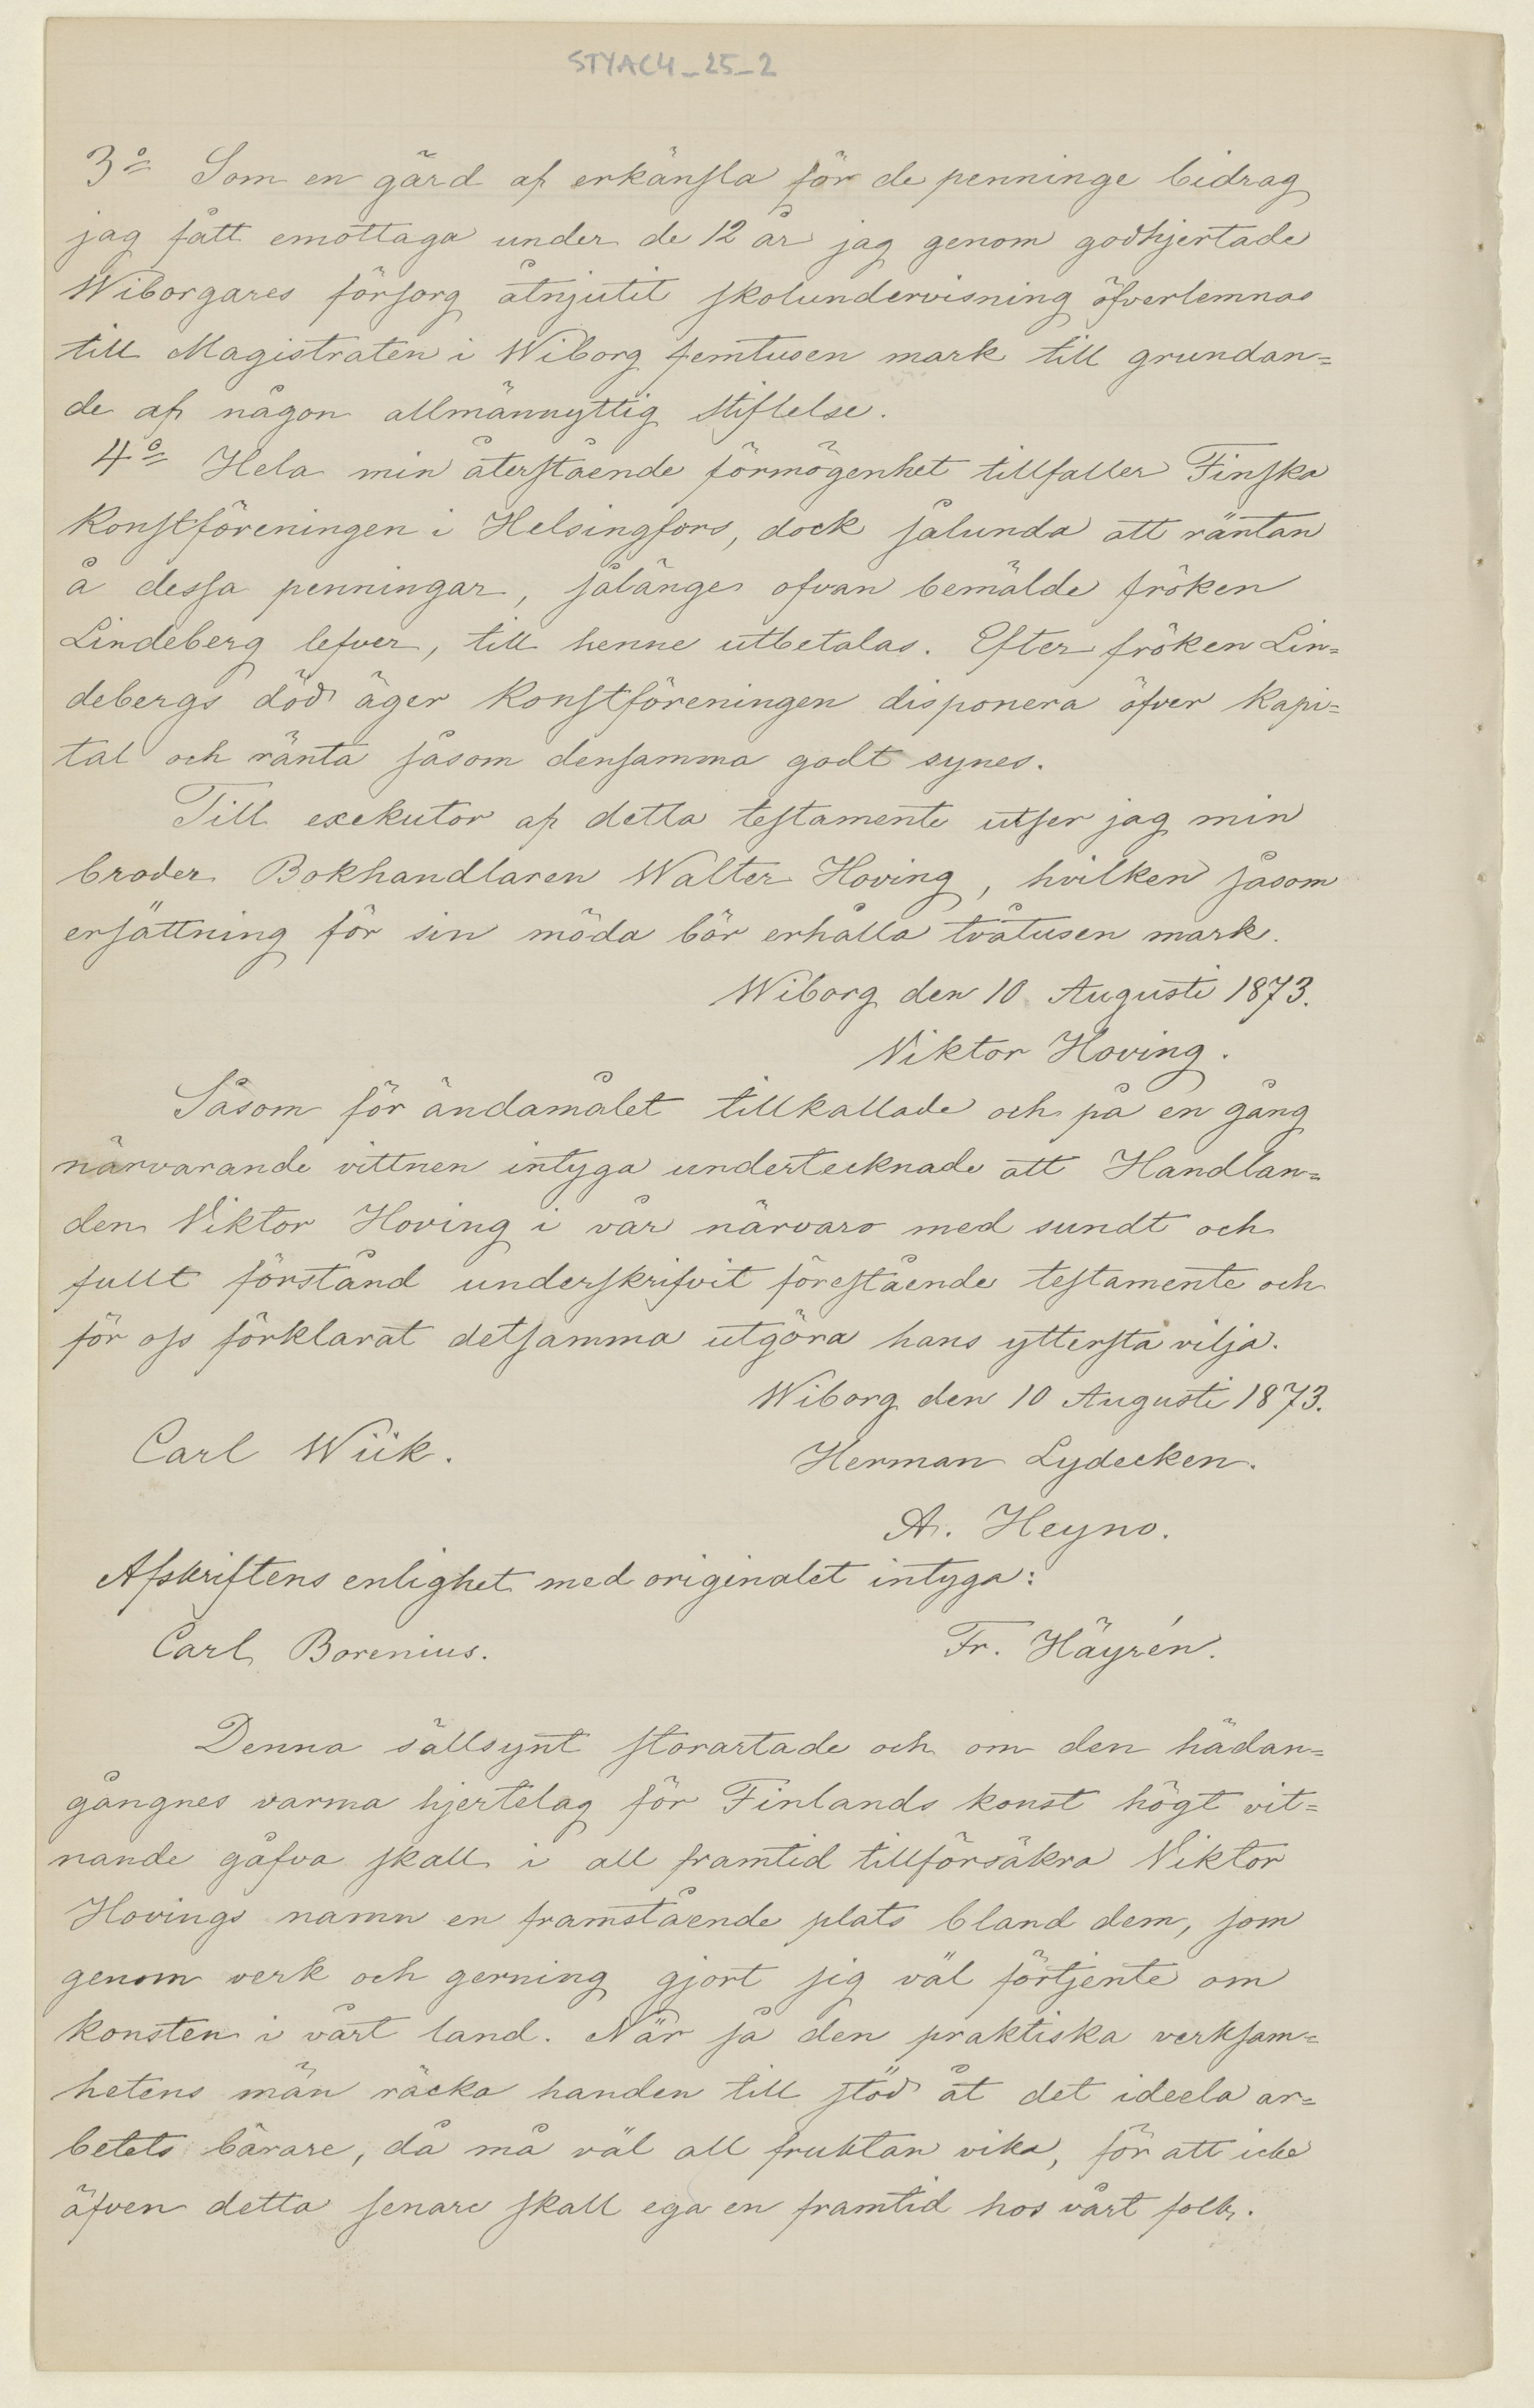 STYAC4_25_2
3:o Som en gärd af erkänsla för de penninge bidrag
jag fått emottaga under de 12 år jag genom godhjertade
Wiborgares försorg åtnjutit skolundervisning öfverlemnas
till Magistraten i Wiborg femtusen mark till grundan=
de af någon allmännyttig stiftelse.
4:o Hela min återstående förmögenhet tillfaller Finska
Konstföreningen i Helsingfors, dock sålunda att räntan
å dessa penningar, sålänge ofvan bemälde fröken
Lindeberg lefver, till henne utbetalas. Efter fröken Lin=
debergs död äger Konstföreningen disponera öfver kapi=
tal och ränta såsom densamma godt synes.
Till exekutor af detta testamente utser jag min
broder Bokhandlaren Walter Hoving, hvilken såsom
ersättning för sin möda bör erhålla tvåtusen mark.
Wiborg den 10 Augusti 1873.
Viktor Hoving.
Såsom för ändamålet tillkallade och på en gång
närvarande vittnen intyga undertecknade att Handlan=
den Viktor Hoving i vår närvaro med sundt och
fullt förstånd underskrifvit förestående testamente och
för oss förklarat detsamma utgöra hans yttersta vilja.
Wiborg den 10 Augusti 1873.
Carl Wiik. Herman Lydecken.
A. Heyno.
Afskriftens enlighet med originalet intyga:
Carl Borenius. Fr. Häyrén.
Denna sällsynt storartade och om den hädan=
gångnes varma hjertelag för Finlands konst högt vit=
nande gåfva skall i all framtid tillförsäkra Viktor
Hovings namn en framstående plats bland dem, som
genom verk och gerning gjort sig väl förtjente om
konsten i vårt land. När så den praktiska verksam=
hetens män räcka handen till stöd åt det ideela ar=
betets bärare, då må väl all fruktan vika, för att icke
äfven detta senare skall ega en framtid hos vårt folk.